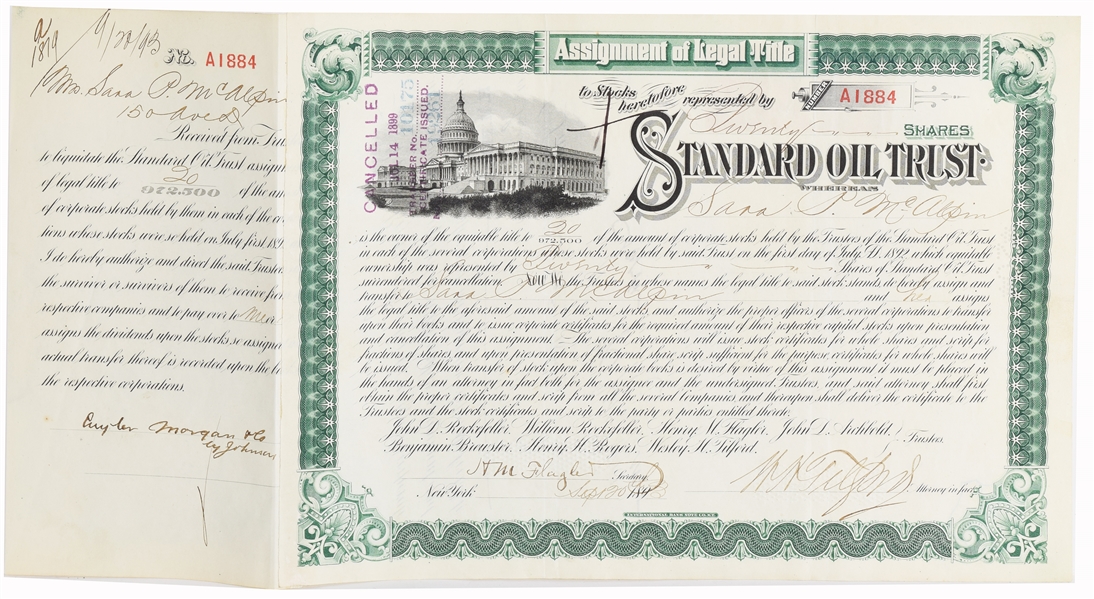 9/20/93
No. A1884
Mrs. Sara P. McAlpin
150 Ave
Received from Trus
to liquidate the Standard Oil Trust assign
of legal title to 20
972.500 of the am
of corporate stocks held by them in each of the cor
tions whose stocks were so held on July first 189
I do hereby authorize and direct the said Trustee
the survivor or survivors of them to receive from
respective companies and to pay over to
assigns the dividends upon the stocks so assigned
actual transfer thereof is recorded upon the bo
the respective corporations.
Cuyler Morgan & Co
by Johnson
Assignment of Legal Title
to Stocks
heretofore represented by
NUMBER
A1884
CANCELLED
JUL 14 1899
TRANSFER NO. 10175
NEW CERTIFICATE ISSUED.
Twenty SHARES
STANDARD OIL TRUST.
WHEREAS
Sara P. McAlpin
is the owner of the equitable title to 20
972.500 of the amount of corporate stocks held by the Trustees of the Standard Oil Trust
in each of the several corporations whose stocks were held by said Trust on the first day of July A.D. 1892 which equitable
ownership was represented by Twenty Shares of Standard Oil Trust
surrendered for cancellation. Now We the Trustees in whose names the legal title to said stock stands, do hereby assign and
transfer to Sara P. McAlpin and her assigns
the legal title to the aforesaid amount of the said stocks, and authorize the proper officers of the several corporations to transfer
upon their books and to issue corporate certificates for the required amount of their respective capital stocks upon presentation
and cancellation of this assignment. — The several corporations will issue stock certificates for whole shares and scrip for
fractions of shares and upon presentation of fractional share scrip sufficient for the purpose, certificates for whole shares will
be issued. When transfer of stock upon the corporate books is desired by virtue of this assignment it must be placed in
the hands of an attorney in fact both for the assignee and the undersigned Trustees, and said attorney shall first
obtain the proper certificates and scrip from all the several Companies, and thereupon shall deliver the certificate to the
Trustees and the stock certificates and scrip to the party or parties entitled thereto.
John D. Rockefeller, William Rockefeller, Henry M. Flagler, John D. Archbold,
Benjamin Brewster, Henry H. Rogers, Wesley H. Tilford. Trustees.
H M Flagler Secretary.
W H Tilford Attorney in fact.
New York Sept 20 1893
INTERNATIONAL BANK NOTE CO. N.Y.